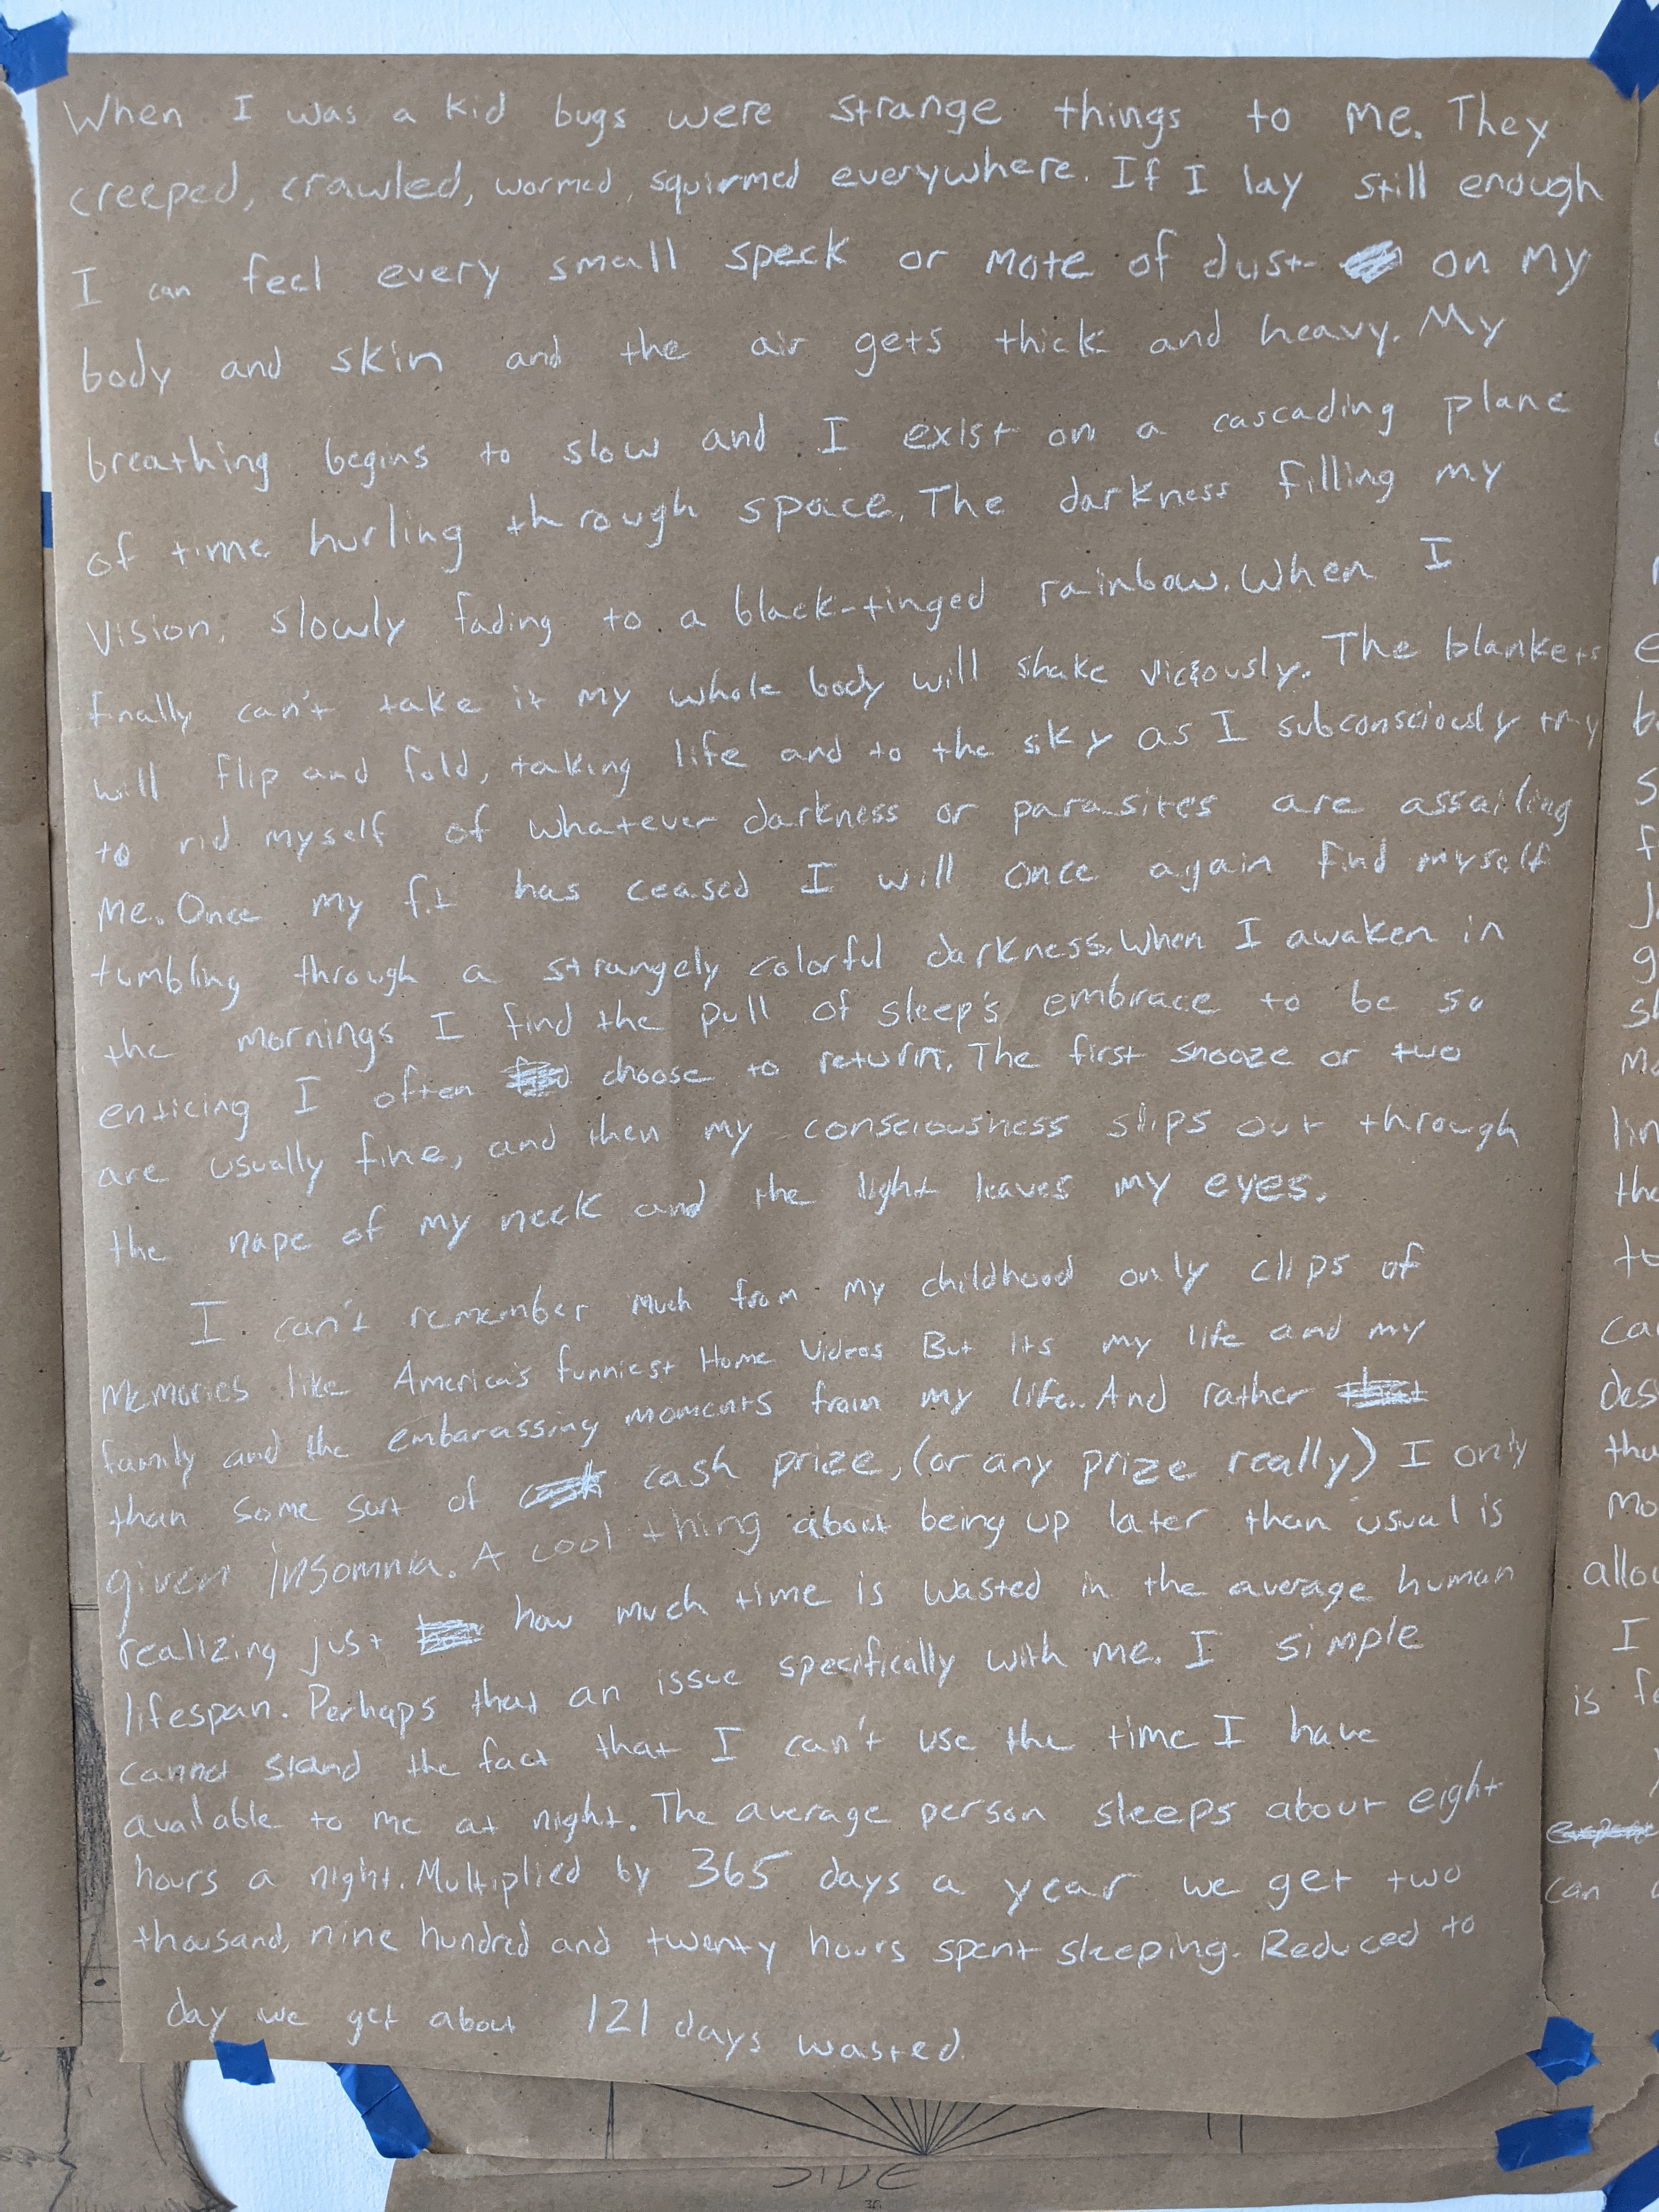 When I was a kid bugs were strange things to me. They
creeped, crawled, wormed, squirmed everywhere. If I lay still enough
I can feel every small speck or mote of dust on my
body and skin and the air gets thick and heavy. My
breathing begins to slow and I exist on a cascading plane
of time hurling through space. The darkness filling my
vision, slowly fading to a black-tinged rainbow. When I
finally can't take it my whole body will shake viciously. The blankets
will flip and fold, taking life and to the sky as I subconsciously try
to rid myself of whatever darkness or parasites are assailing
me. Once my fit has ceased I will once again find myself
tumbling through a strangely colorful darkness. When I awaken in
the mornings I find the pull of sleep's embrace to be so
enticing I often choose to return. The first snooze or two
are usually fine, and then my consciousness slips out through
the nape of my neck and the light leaves my eyes.
I can't remember much from my childhood only clips of
memories like America's funniest Home Videos But its my life and my
family and the embarassing moments from my life. And rather
than some sort of cash prize, (or any prize really) I only
given insomnia. A cool thing about being up later than usual is
realizing just how much time is wasted in the average human
lifespan. Perhaps that an issue specifically with me. I simple
cannot stand the fact that I can't use the time I have
available to me at night. The average person sleeps about eight
hours a night. Multiplied by 365 days a year we get two
thousand, nine hundred and twenty hours spent sleeping. Reduced to
day we get about 121 days wasted.
SIDE
can
allow
I
is